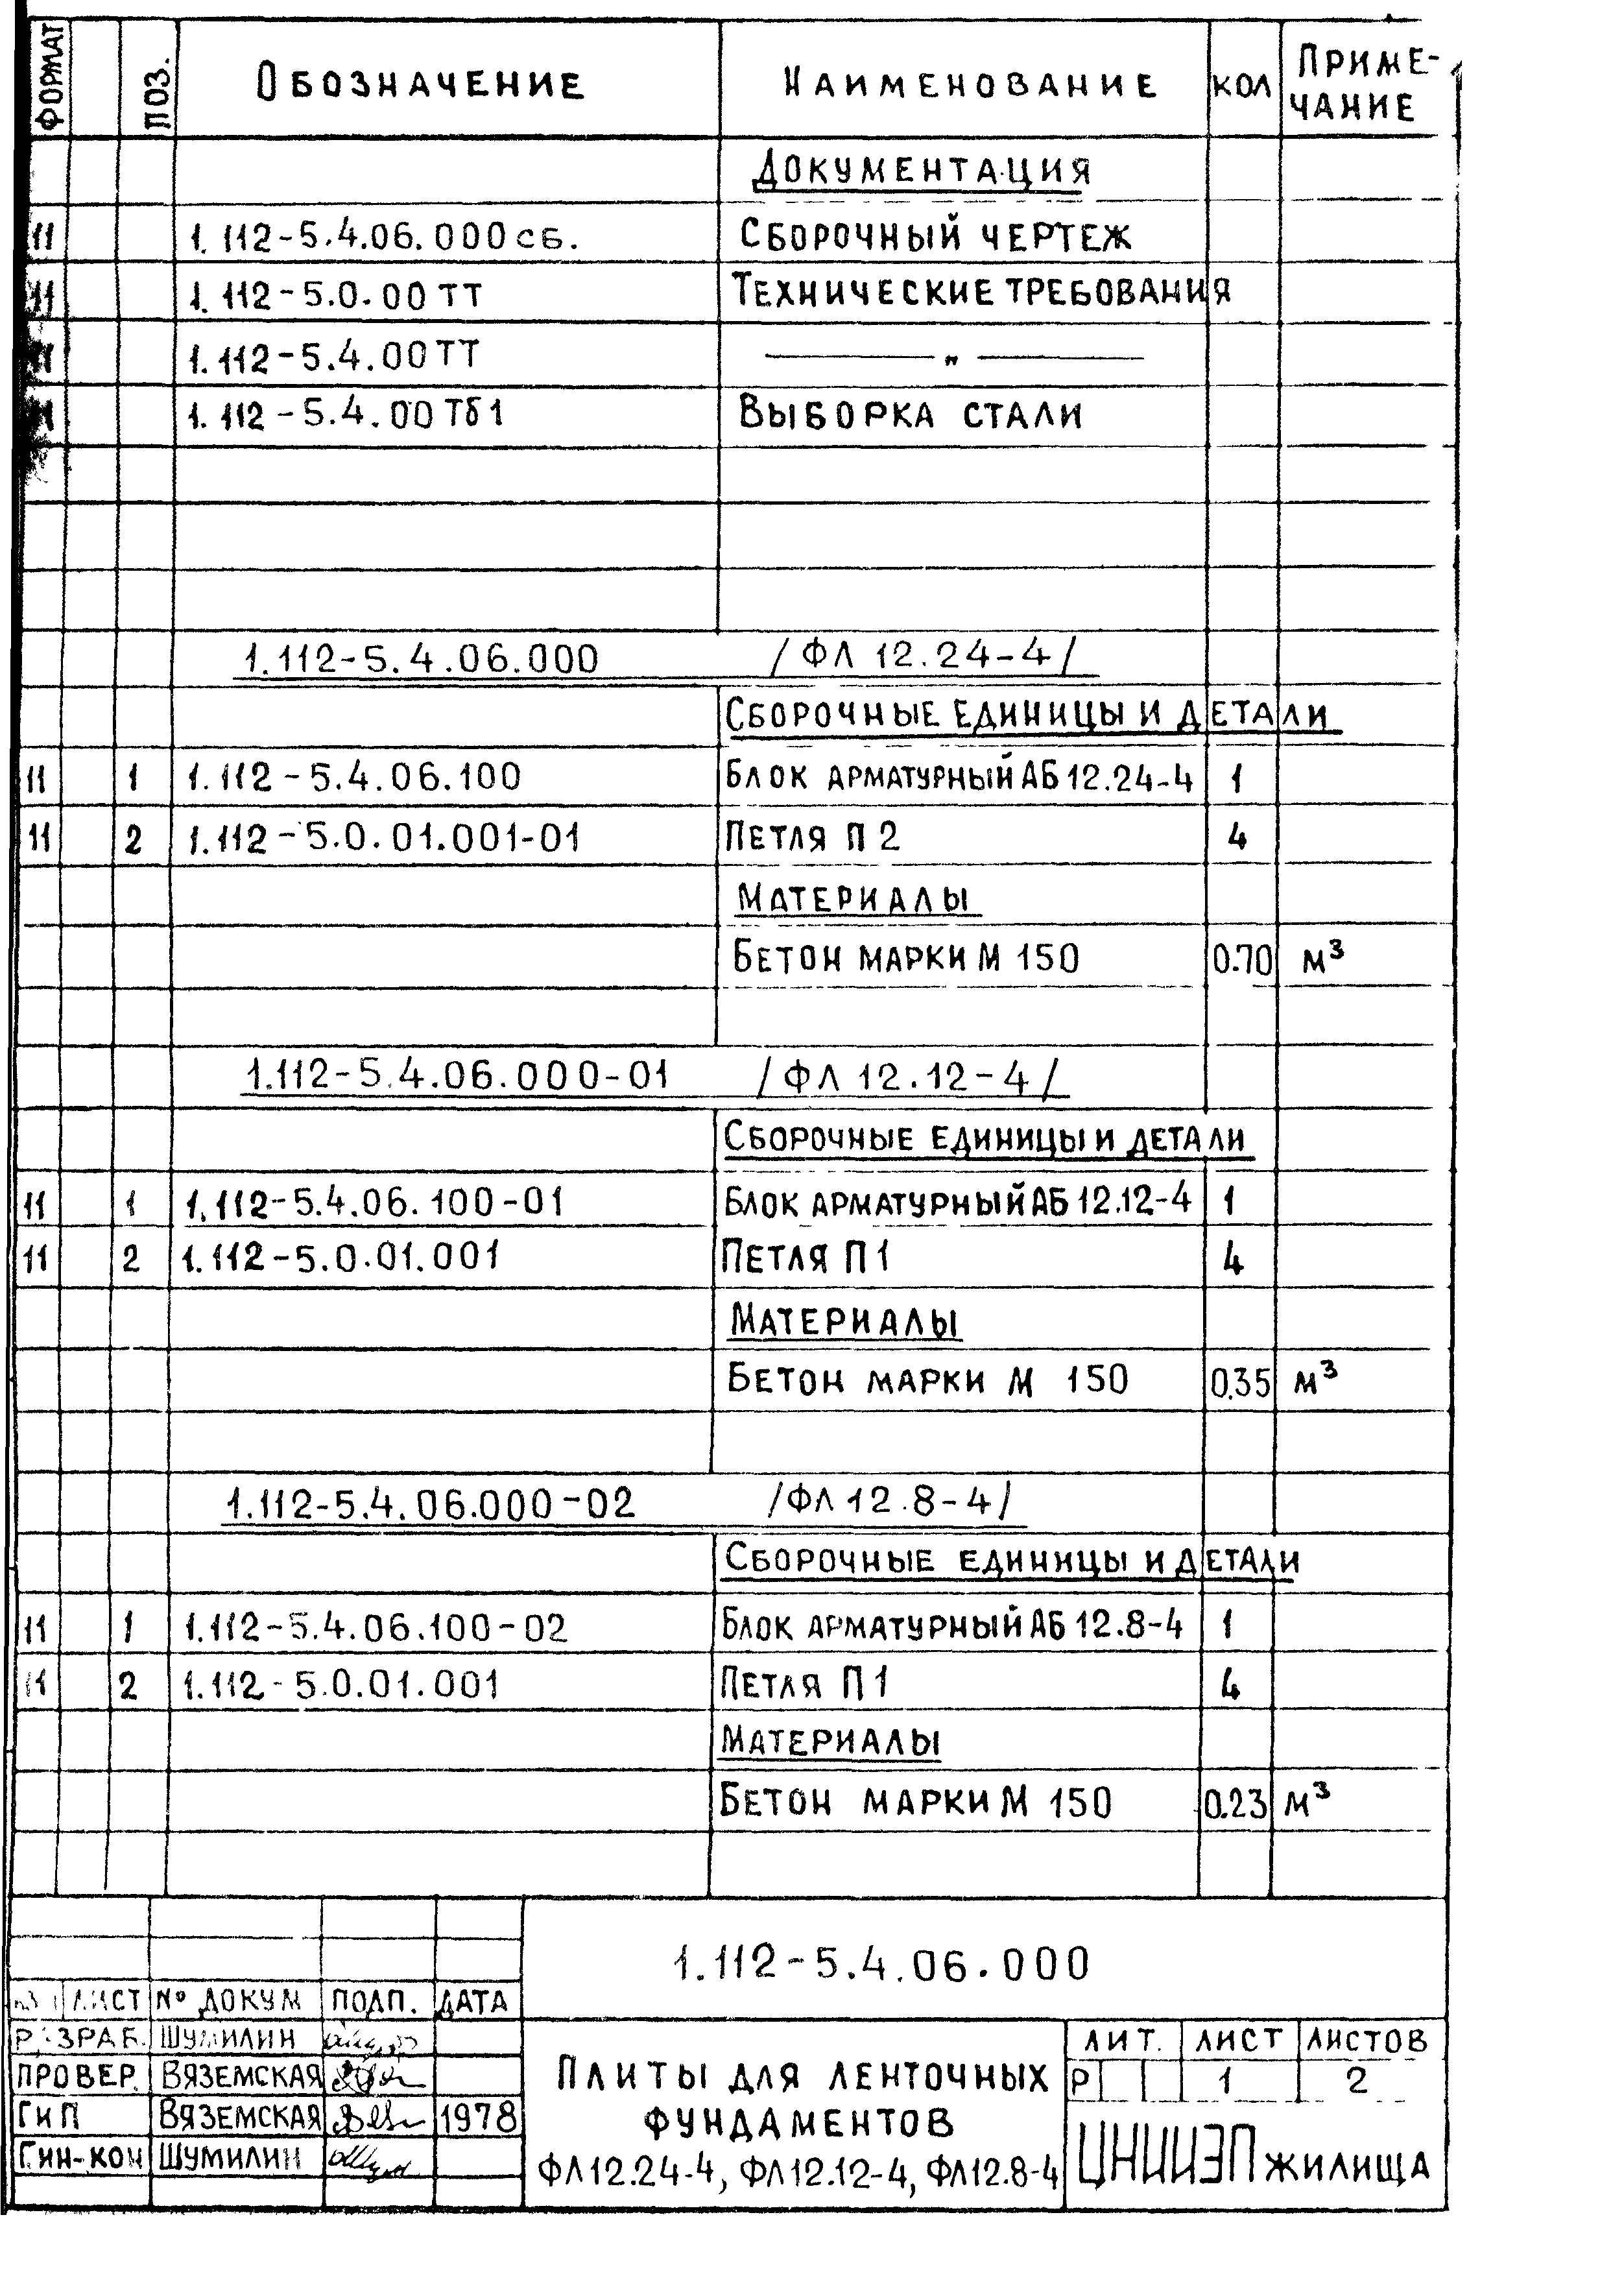 ФОРМАТ ПОЗ. ОБОЗНАЧЕНИЕ НАИМЕНОВАНИЕ КОЛ ПРИМЕ-
ЧАНИЕ
ДОКУМЕНТАЦИЯ
11 1.112-5.4.06.000СБ. СБОРОЧНЫЙ ЧЕРТЕЖ
11 1.112-5.0.00ТТ ТЕХНИЧЕСКИЕ ТРЕБОВАНИЯ
11 1.112-5.4.00ТТ — „ —
11 1.112-5.4.00Тб1 ВЫБОРКА СТАЛИ
1.112-5.4.06.000 /ФЛ 12.24-4/
СБОРОЧНЫЕ ЕДИНИЦЫ И ДЕТАЛИ
11 1 1.112-5.4.06.100 БЛОК АРМАТУРНЫЙ АБ 12.24-4 1
11 2 1.112-5.0.01.001-01 ПЕТЛЯ П2 4
МАТЕРИАЛЫ
БЕТОН МАРКИ М 150 0.70 м³
1.112-5.4.06.000-01 /ФЛ 12.12-4/
СБОРОЧНЫЕ ЕДИНИЦЫ И ДЕТАЛИ
11 1 1.112-5.4.06.100-01 БЛОК АРМАТУРНЫЙ АБ 12.12-4 1
11 2 1.112-5.0.01.001 ПЕТЛЯ П1 4
МАТЕРИАЛЫ
БЕТОН МАРКИ М 150 0.35 м³
1.112-5.4.06.000-02 /ФЛ 12.8-4/
СБОРОЧНЫЕ ЕДИНИЦЫ И ДЕТАЛИ
11 1 1.112-5.4.06.100-02 БЛОК АРМАТУРНЫЙ АБ 12.8-4 1
11 2 1.112-5.0.01.001 ПЕТЛЯ П1 4
МАТЕРИАЛЫ
БЕТОН МАРКИ М 150 0.23 м³
1.112-5.4.06.000
ЛИСТ № ДОКУМ ПОДП. ДАТА
РАЗРАБ. ШУМИЛИН
ПРОВЕР. ВЯЗЕМСКАЯ
ГИП ВЯЗЕМСКАЯ 1978
ГИН-КОН ШУМИЛИН
ПЛИТЫ ДЛЯ ЛЕНТОЧНЫХ
ФУНДАМЕНТОВ
ФЛ12.24-4, ФЛ12.12-4, ФЛ12.8-4
ЛИТ. ЛИСТ ЛИСТОВ
Р 1 2
ЦНИИЭП ЖИЛИЩА